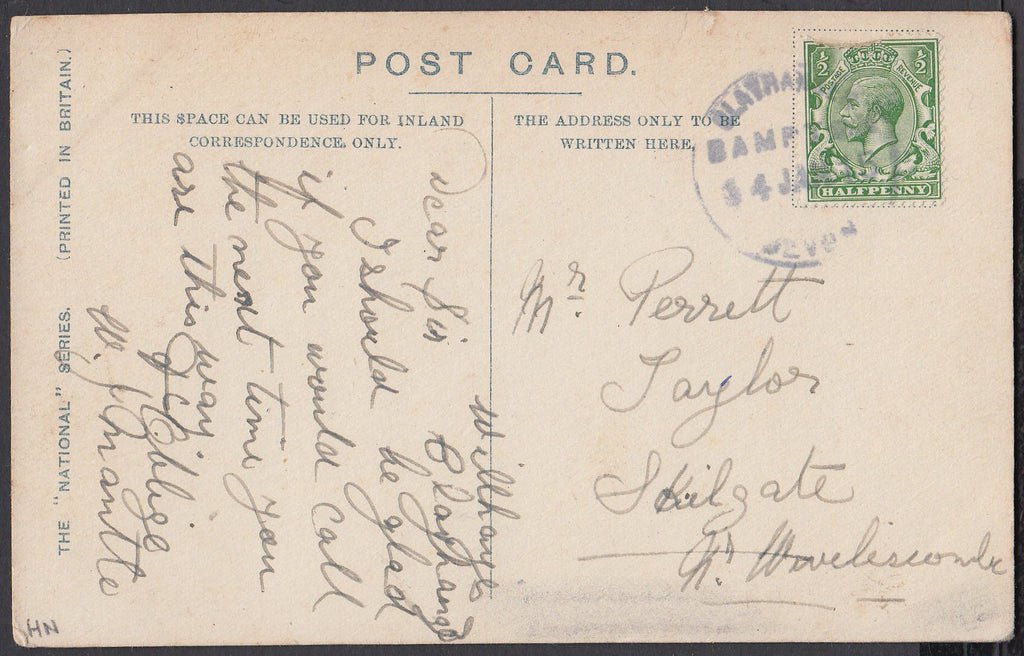 POST CARD.
THIS SPACE CAN BE USED FOR INLAND
CORRESPONDENCE ONLY.
THE ADDRESS ONLY TO BE
WRITTEN HERE.
THE "NATIONAL" SERIES. (PRINTED IN BRITAIN.)
½ ½
POSTAGE REVENUE
HALFPENNY
BAMP
4 JA
DEVON
Willhays
Clayhanger
Dear Sir
I should be glad
if you would call
the next time you
are this way
& Oblige
W. J.
Mr Perrett
Taylor
Skilgate
Nr Waveliscombe
HN